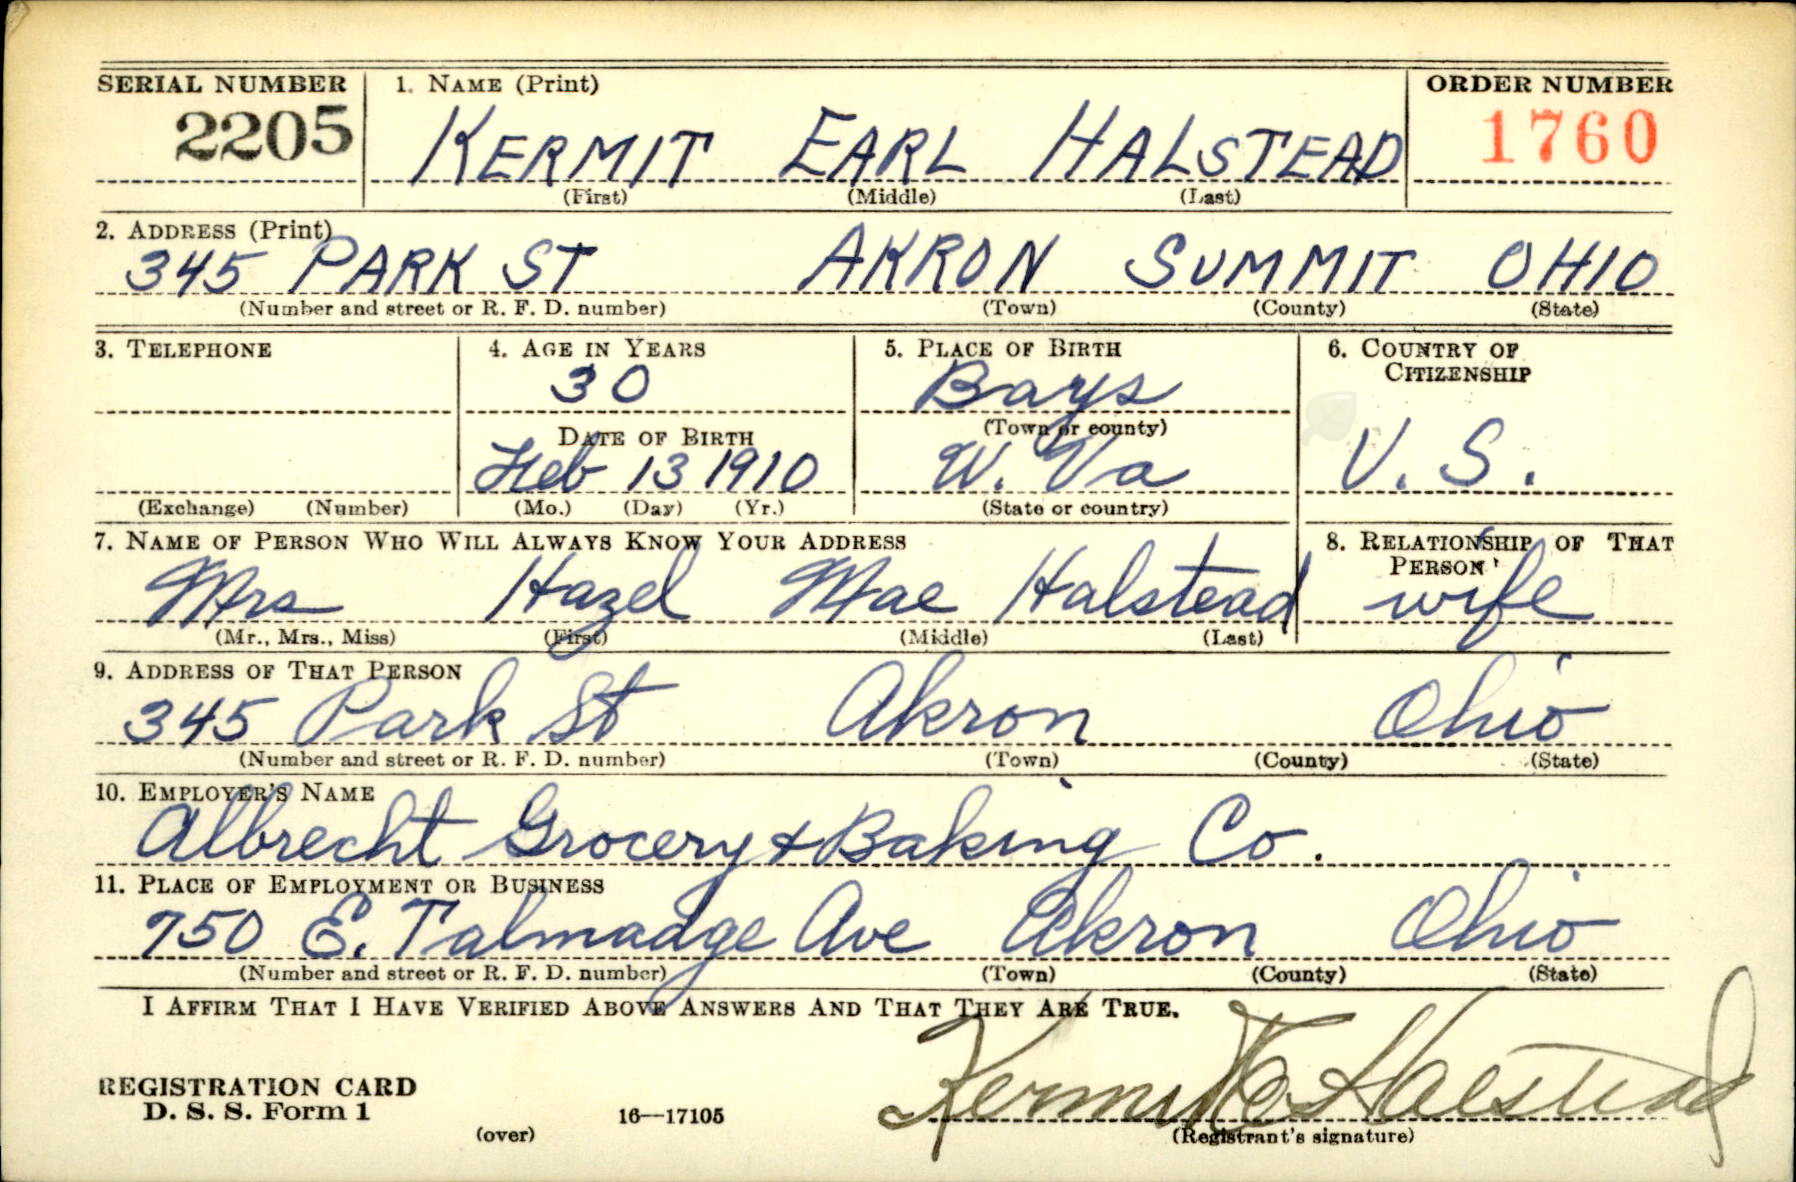 SERIAL NUMBER 1. NAME (Print) ORDER NUMBER
2205 KERMIT EARL HALSTEAD 1760
(First) (Middle) (Last)
2. ADDRESS (Print)
345 PARK ST AKRON SUMMIT OHIO
(Number and street or R. F. D. number) (Town) (County) (State)
3. TELEPHONE 4. AGE IN YEARS 5. PLACE OF BIRTH 6. COUNTRY OF
CITIZENSHIP
30 Bays
DATE OF BIRTH (Town or county)
Feb 13 1910 W. Va U. S.
(Exchange) (Number) (Mo.) (Day) (Yr.) (State or country)
7. NAME OF PERSON WHO WILL ALWAYS KNOW YOUR ADDRESS 8. RELATIONSHIP OF THAT
PERSON
Mrs Hazel Mae Halstead wife
(Mr., Mrs., Miss) (First) (Middle) (Last)
9. ADDRESS OF THAT PERSON
345 Park St Akron Ohio
(Number and street or R. F. D. number) (Town) (County) (State)
10. EMPLOYER'S NAME
Albrecht Grocery & Baking Co.
11. PLACE OF EMPLOYMENT OR BUSINESS
750 E. Talmadge Ave Akron Ohio
(Number and street or R. F. D. number) (Town) (County) (State)
I AFFIRM THAT I HAVE VERIFIED ABOVE ANSWERS AND THAT THEY ARE TRUE.
Kermit E Halstead
REGISTRATION CARD
D. S. S. Form 1 16—17105
(over) (Registrant's signature)